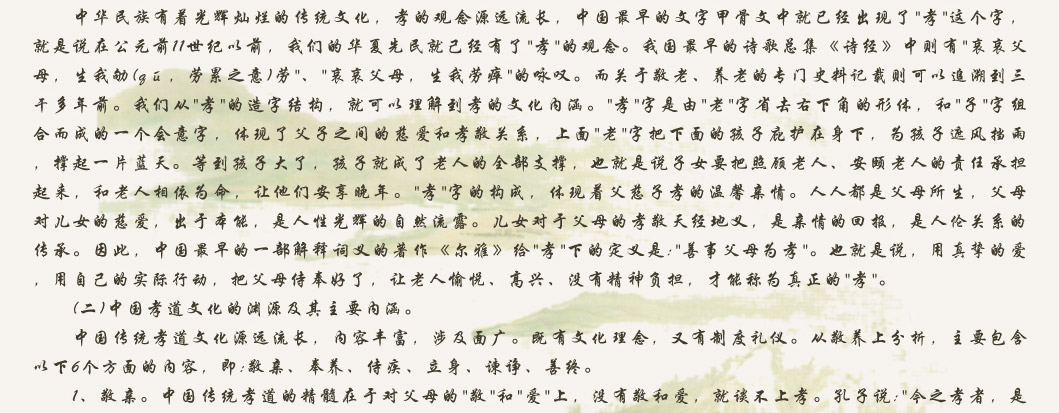 中华民族有着光辉灿烂的传统文化，孝的观念源远流长，中国最早的文字甲骨文中就已经出现了"孝"这个字，
就是说在公元前11世纪以前，我们的华夏先民就已经有了"孝"的观念。我国最早的诗歌总集《诗经》中则有"哀哀父
母，生我劬(qú，劳累之意)劳"、"哀哀父母，生我劳瘁"的咏叹。而关于敬老、养老的专门史料记载则可以追溯到三
千多年前。我们从"孝"的造字结构，就可以理解到孝的文化内涵。"孝"字是由"老"字省去右下角的形体，和"子"字组
合而成的一个会意字，体现了父子之间的慈爱和孝敬关系，上面"老"字把下面的孩子庇护在身下，为孩子遮风挡雨
，撑起一片蓝天。等到孩子大了，孩子就成了老人的全部支撑，也就是说子女要把照顾老人、安颐老人的责任承担
起来，和老人相依为命，让他们安享晚年。"孝"字的构成，体现着父慈子孝的温馨亲情。人人都是父母所生，父母
对儿女的慈爱，出于本能，是人性光辉的自然流露。儿女对于父母的孝敬天经地义，是亲情的回报，是人伦关系的
传承。因此，中国最早的一部解释词义的著作《尔雅》给"孝"下的定义是:"善事父母为孝"。也就是说，用真挚的爱
，用自己的实际行动，把父母侍奉好了，让老人愉悦、高兴、没有精神负担，才能称为真正的"孝"。
(二)中国孝道文化的渊源及其主要内涵。
中国传统孝道文化源远流长，内容丰富，涉及面广。既有文化理念，又有制度礼仪。从敬养上分析，主要包含
以下6个方面的内容，即:敬亲、奉养、侍疾、立身、谏诤、善终。
1、敬亲。中国传统孝道的精髓在于对父母的"敬"和"爱"上，没有敬和爱，就谈不上孝。孔子说:"今之孝者，是